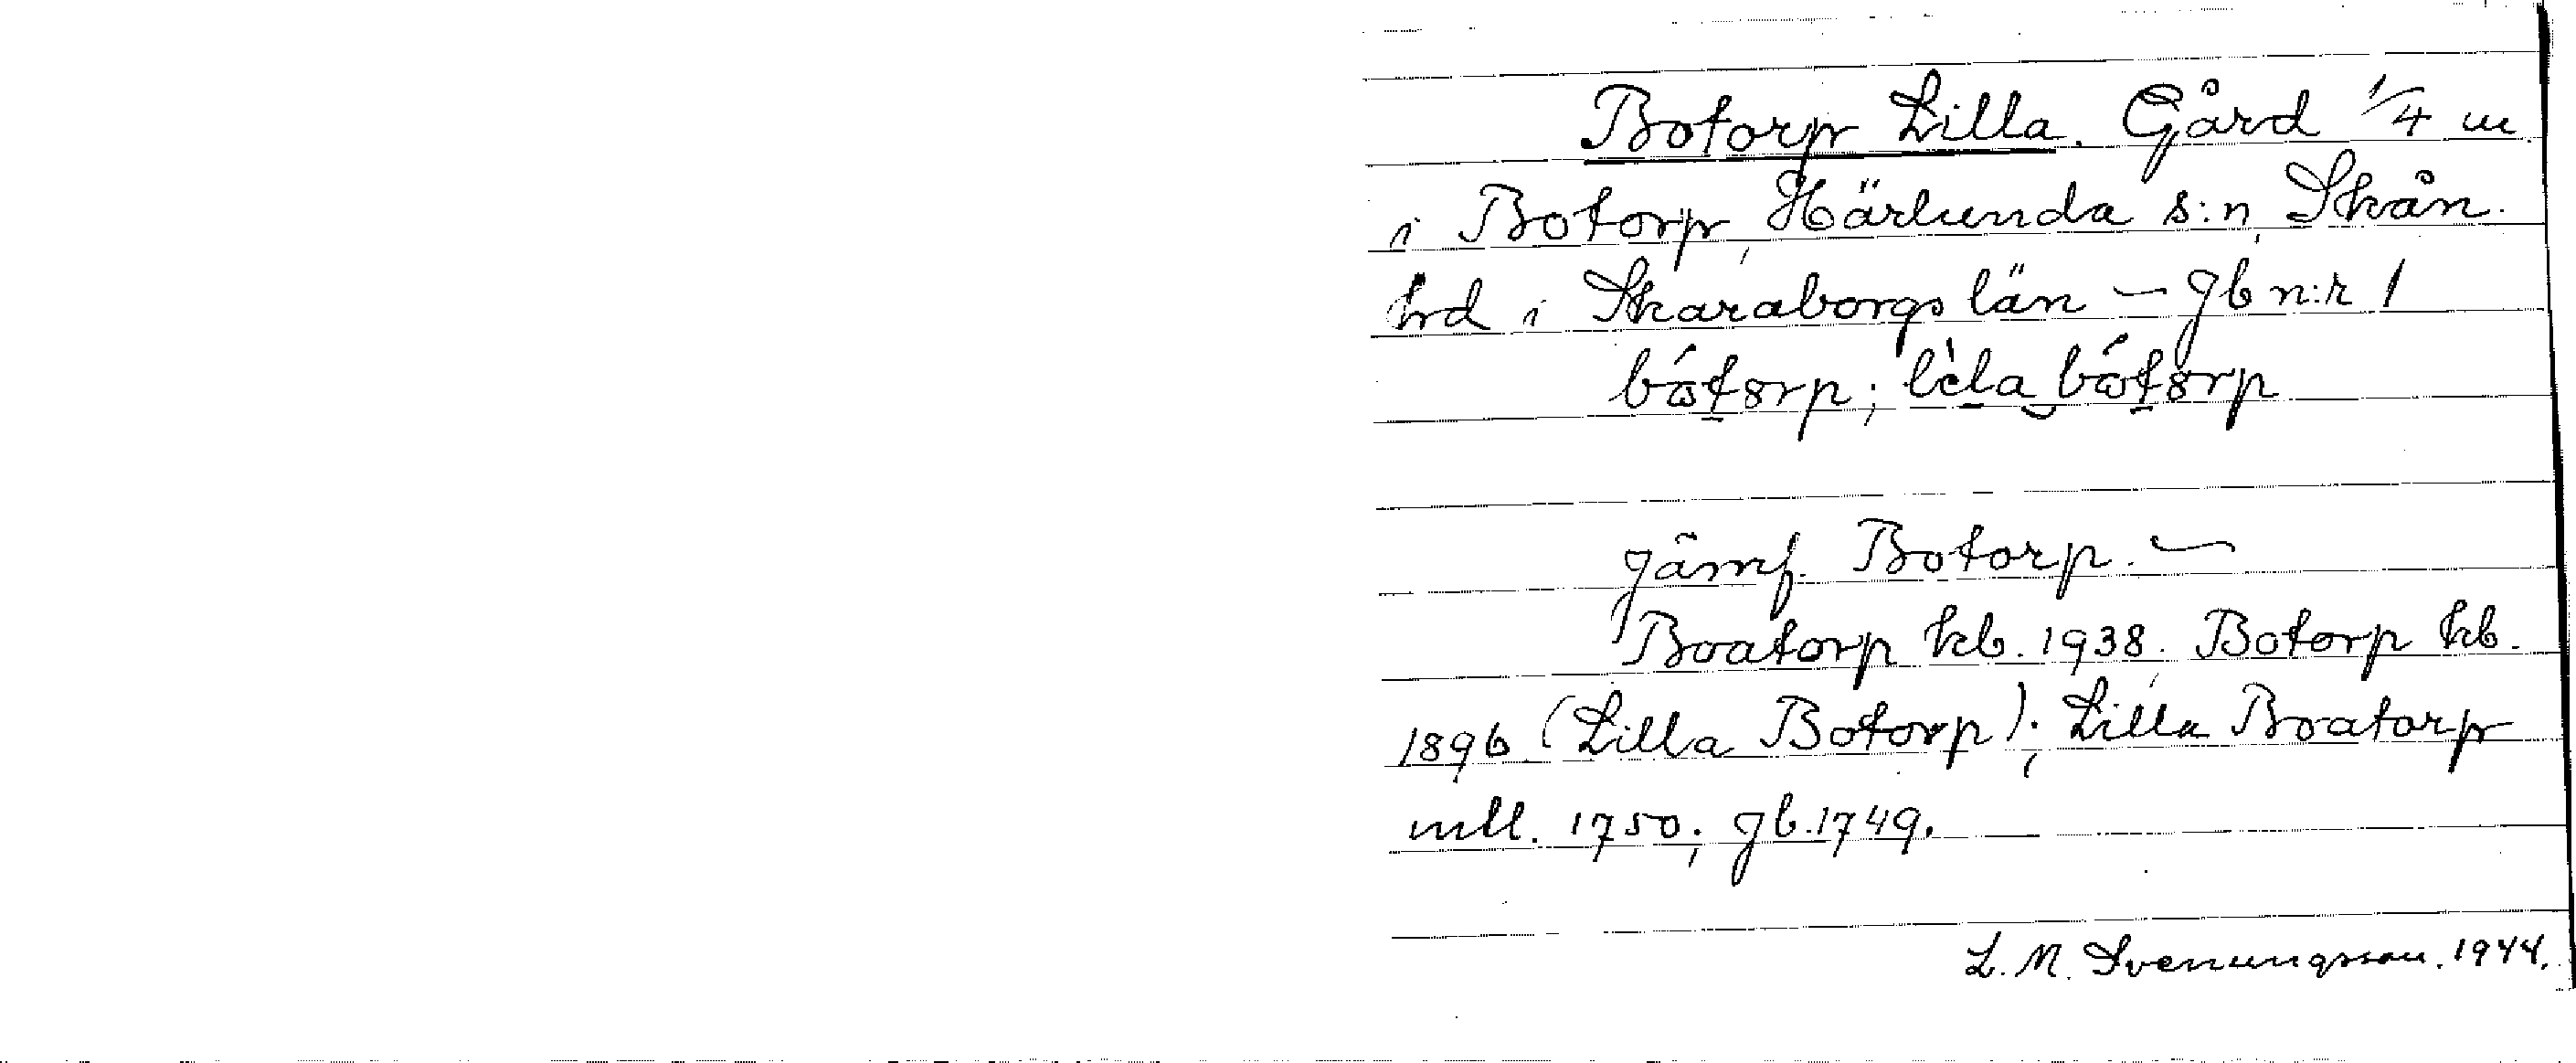 Botorp Lilla. Gård 1/4 m
i Botorp, Härlunda s:n, Skån.
hrd i Skaraborgs län – gb n:r 1
bótorp; lela bótorp
jämf. Botorp. –
Boatorp kb. 1938; Botorp kb.
1896 (Lilla Botorp); Lilla Boatorp
mtl. 1750; gb. 1749.
L. M. Svenungsson. 1944.